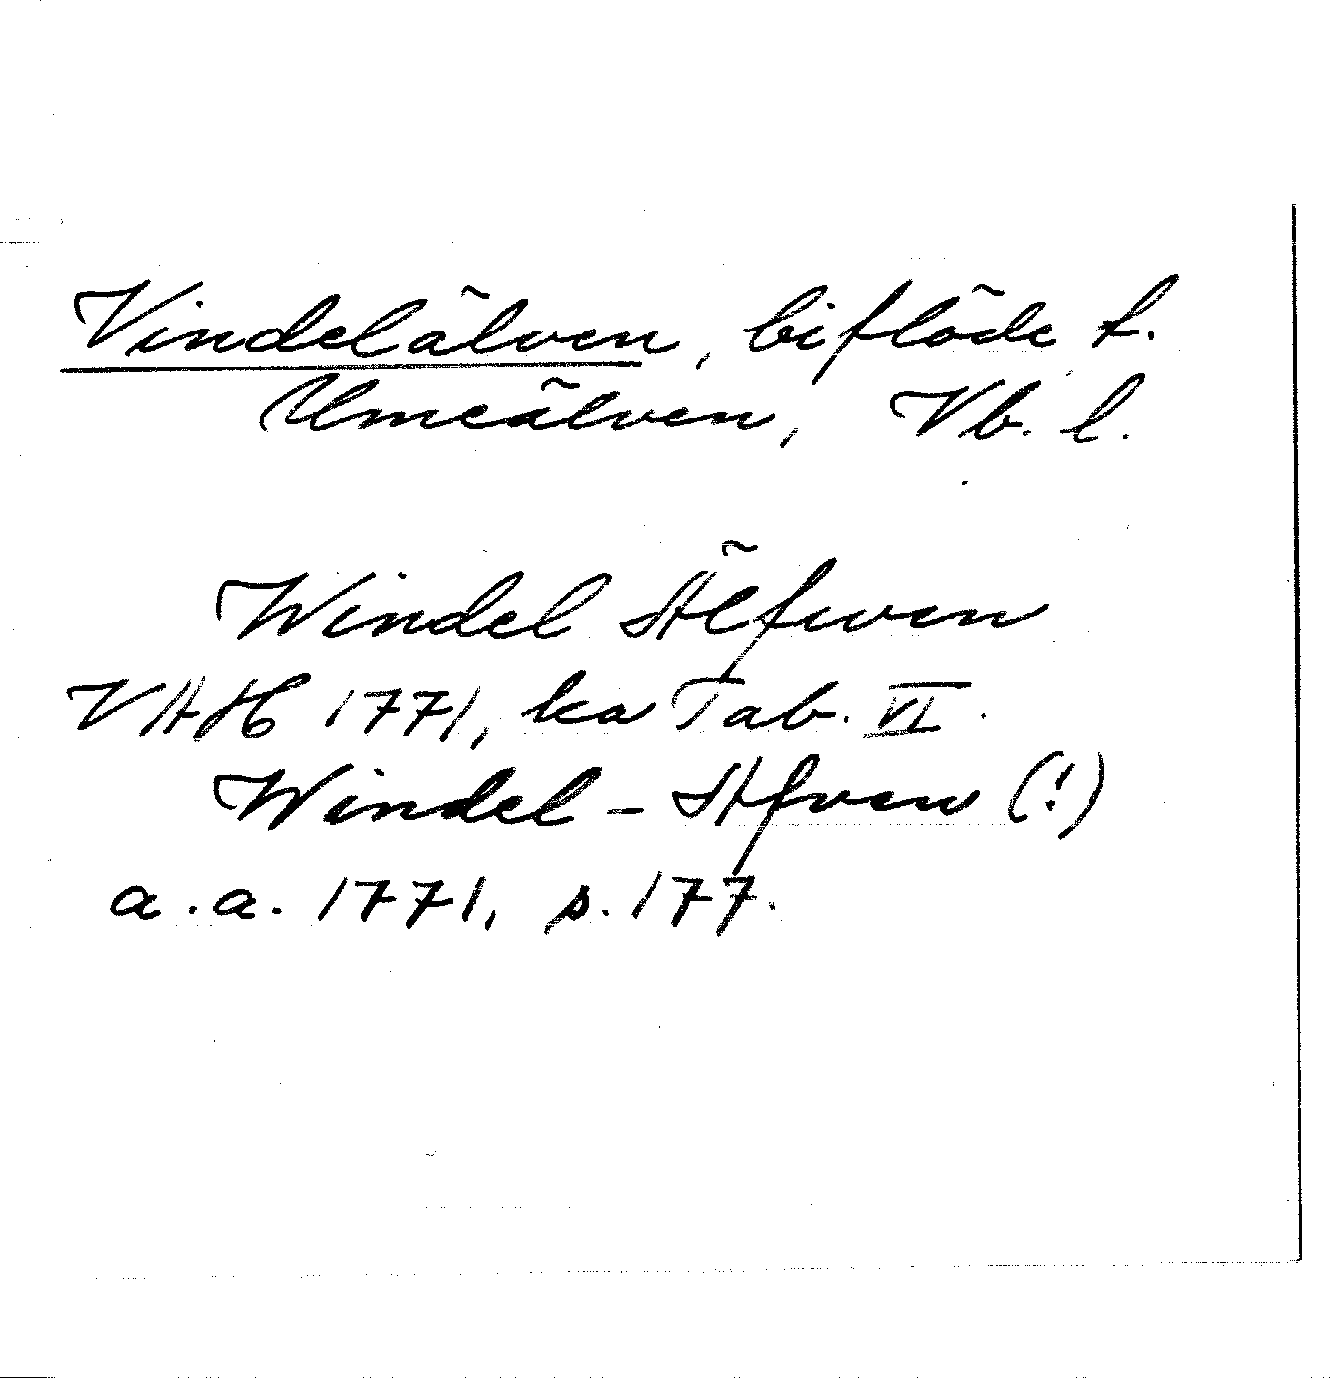 Vindelälven, biflöde t.
Umeälven, Vb. l.
Windel Älfwen
VAH 1771, ka Tab. VI.
Windel - Afwen (!)
a.a. 1771, s. 177.